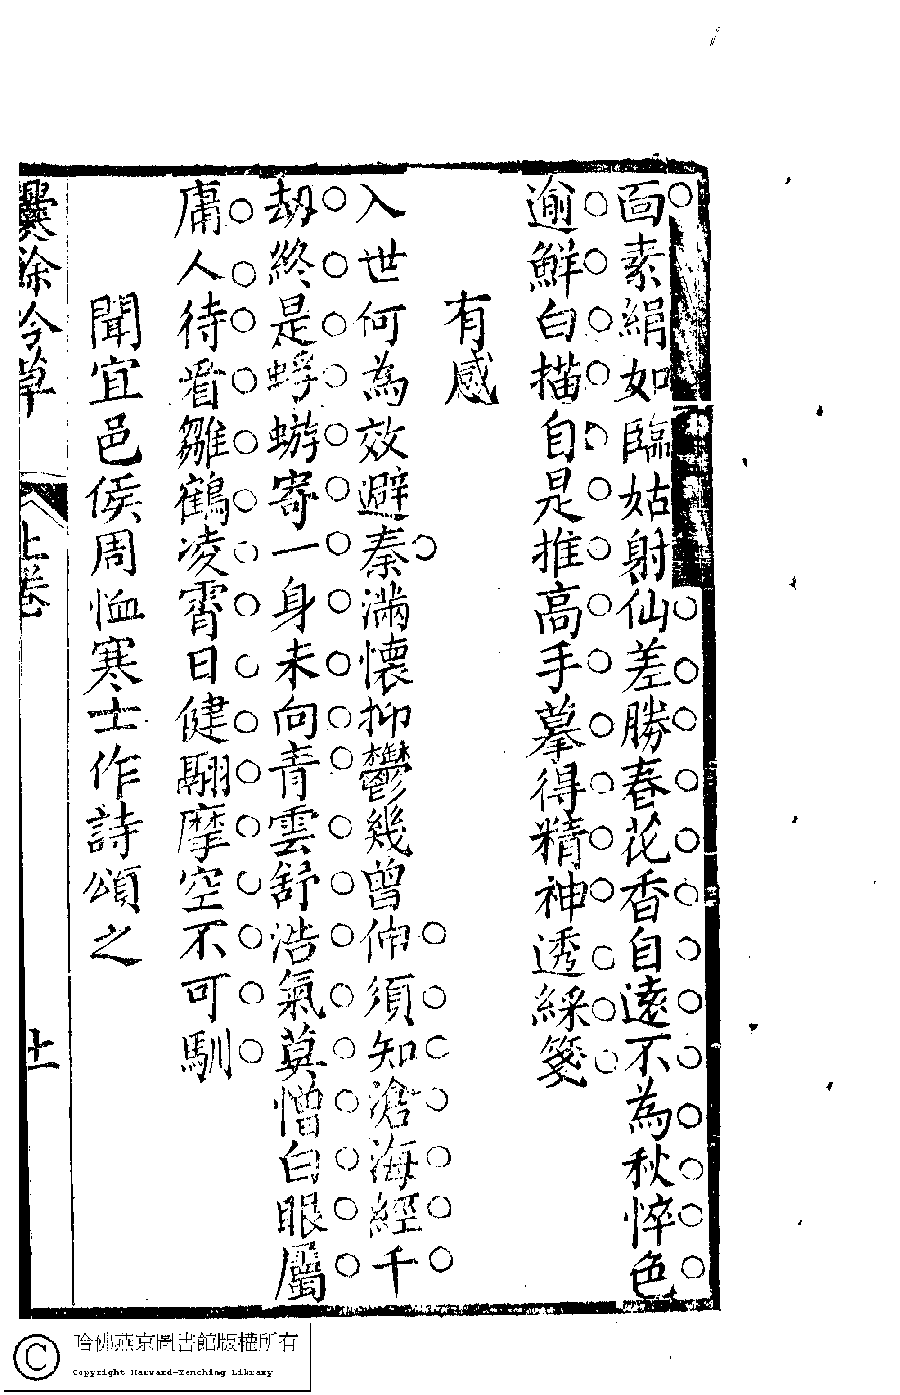 面素絹如臨姑射仙差勝春花香自遠不為秋悴色
逾鮮白描自是推高手摹得精神透綵箋
有感
入世何為效避秦滿懷抑鬱幾曾伸須知滄海經千
劫終是蜉蝣寄一身未向青雲舒浩氣莫憎白眼屬
庸人待看雛鶴凌霄日健翮摩空不可馴
聞宜邑侯周恤寒士作詩頌之
爨餘吟草
上卷
十一
哈佛燕京圖書館版權所有
Copyright Harvard-Yenching Library